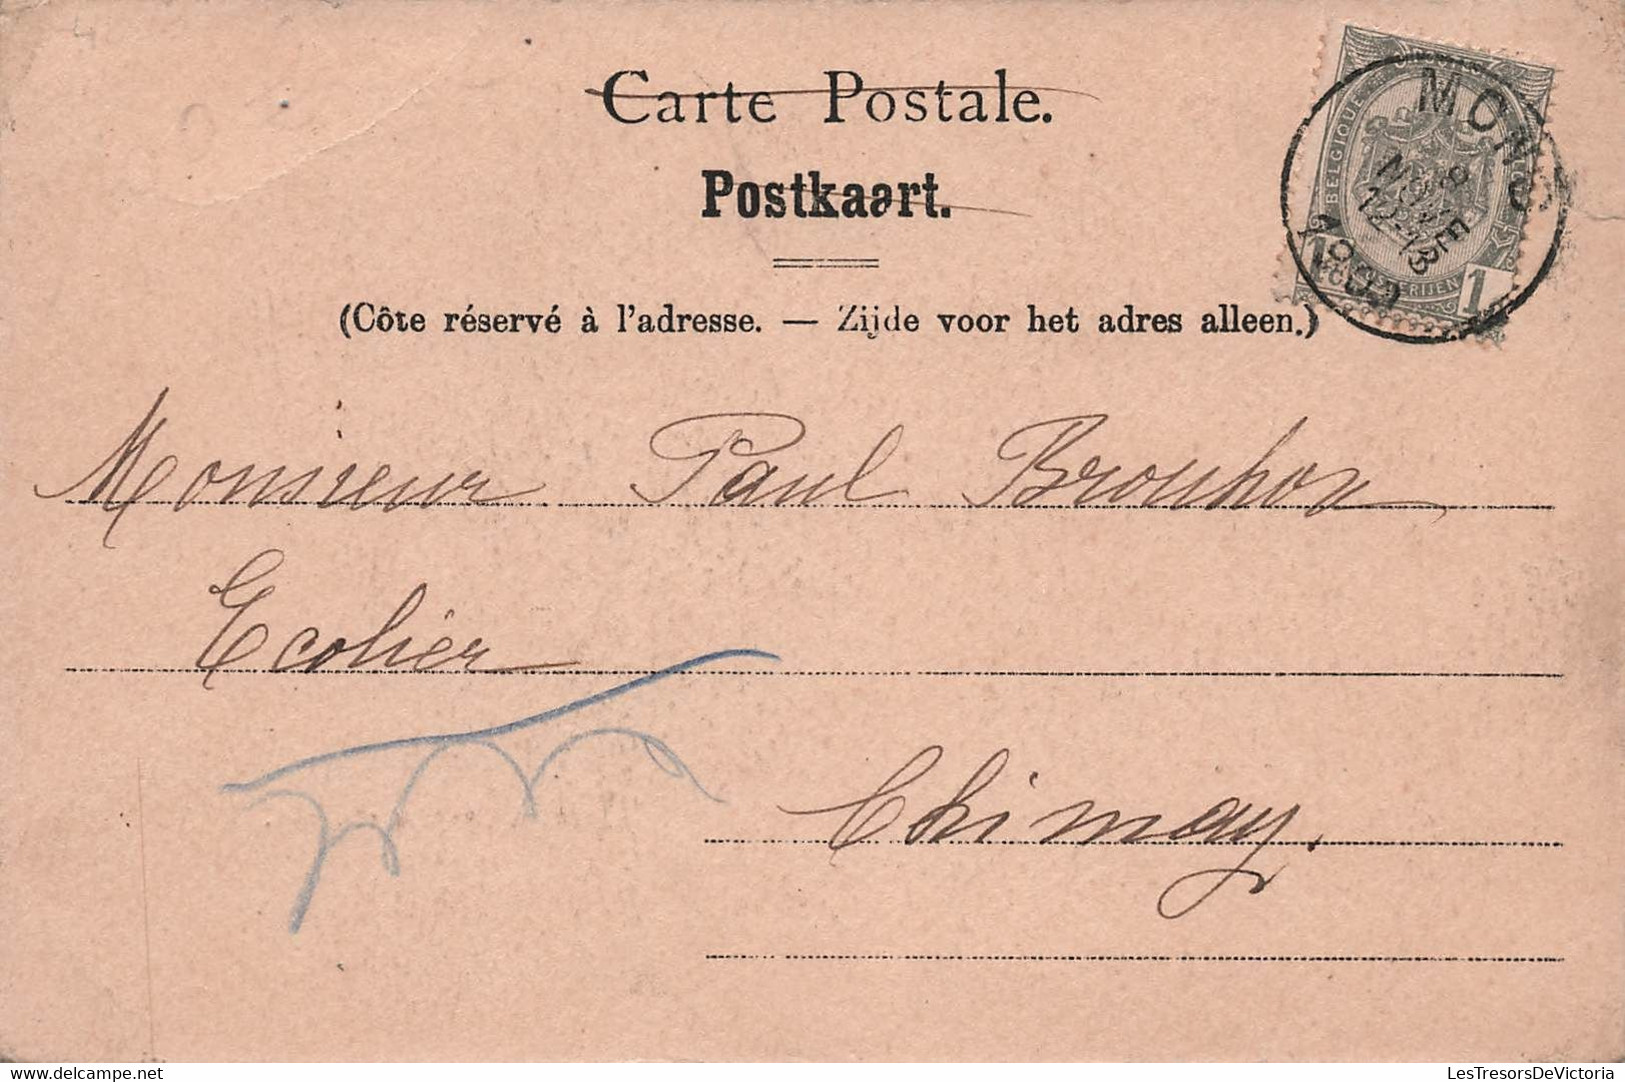 Carte Postale.
Postkaart.
(Côte réservé à l'adresse. — Zijde voor het adres alleen.)
MONS
8
NOVE
12-13
BELGIQUE
1 1
Monsieur Paul Brouhon
Ecolier
Chimay.
delcampe.net
LesTresorsDeVictoria